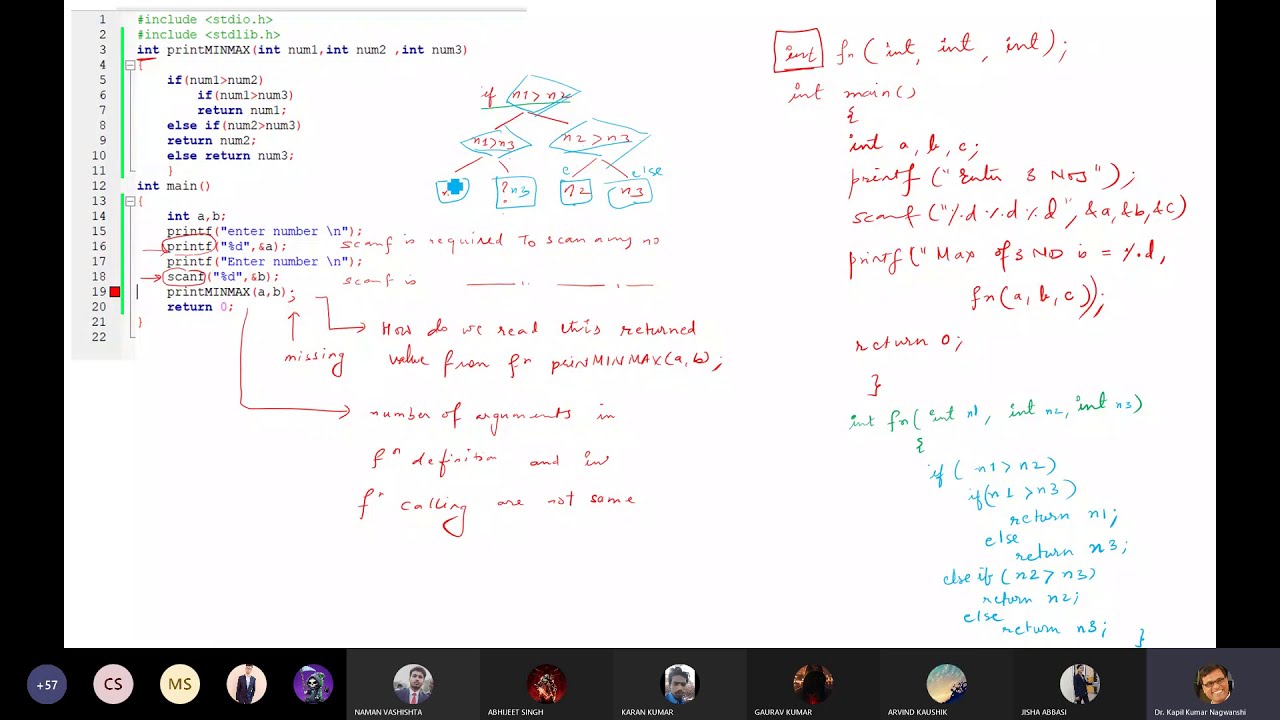 1 #include <stdio.h>
2 #include <stdlib.h>
3 int printMINMAX(int num1,int num2 ,int num3)
4 {
5 if(num1>num2)
6 if(num1>num3)
7 return num1;
8 else if(num2>num3)
9 return num2;
10 else return num3;
11 }
12 int main()
13 {
14 int a,b;
15 printf("enter number \n");
16 printf("%d",&a);
17 printf("Enter number \n");
18 scanf("%d",&b);
19 printMINMAX(a,b);
20 return 0;
21 }
22
if n1>n2
n1>n3 n2>n3
c else
? n3 n2 n3
scanf is required To scan any no
scanf is
missing
How do we read this returned
value from fn prinMINMAX(a,b);
number of arguments in
fn definition and in
fn calling are not same
int fn(int, int, int);
int main()
{
int a, b, c;
printf("Enter 3 Nos");
scanf("%d%d%d", &a,&b,&c)
printf("Max of 3 NO is = %d,
fn(a,b,c));
return 0;
}
int fn(int n1, int n2, int n3)
{
if( n1>n2)
if(n1>n3)
return n1;
else
return n3;
else if(n2>n3)
return n2;
else
return n3; }
+57 CS MS
NAMAN VASHISHTA ABHIJEET SINGH KARAN KUMAR GAURAV KUMAR ARVIND KAUSHIK JISHA ABBASI Dr. Kapil Kumar Nagwanshi